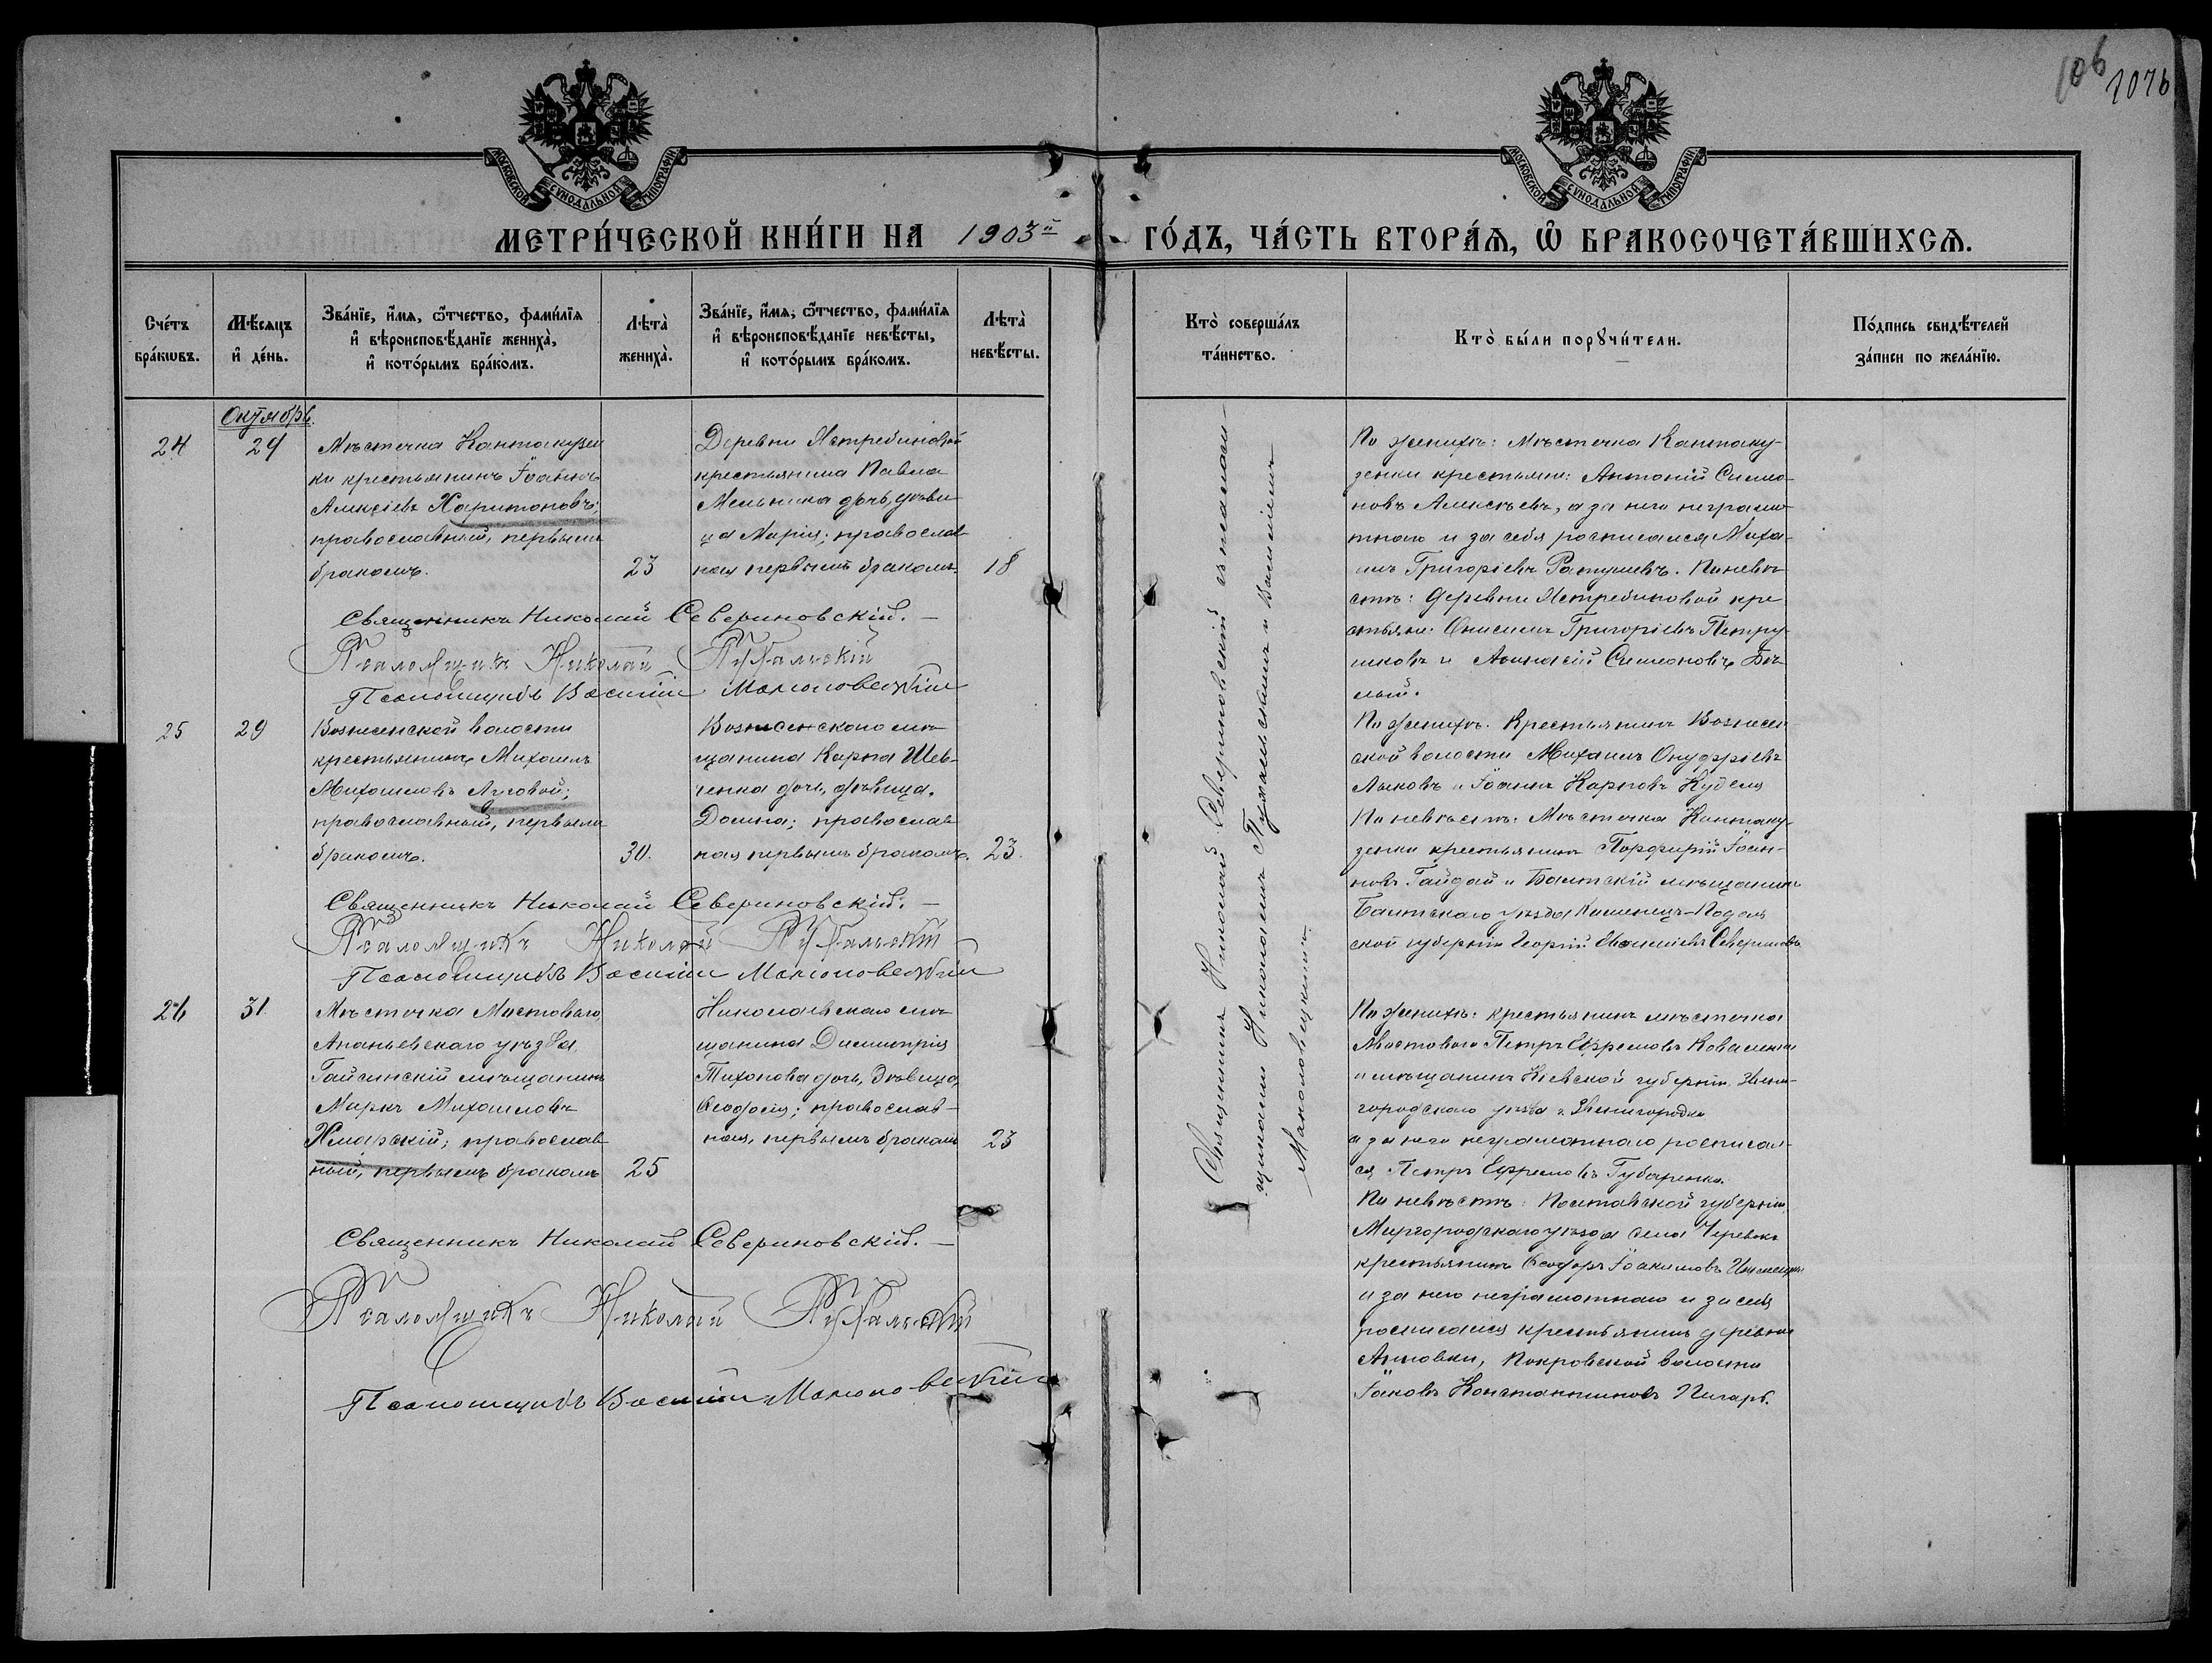 106
1076
МОСКОВСКОЙ СѴНОДАЛЬНОЙ ТИПОГРАФІИ
МОСКОВСКОЙ СѴНОДАЛЬНОЙ ТИПОГРАФІИ
МЕТРИ́ЧЕСКОЙ КНИ́ГИ НА 1903й ГО́ДЪ, ЧА́СТЬ ВТОРА́Ѧ, Ѽ БРАКОСОЧЕТА́ВШИХСѦ.
Сче́тъ
бра́кωвъ.
Мѣ́сяцъ
и҆ де́нь.
Зва́нїе, и҆́мя, ѻ҆́тчество, фами́лїя
и҆ вѣроисповѣ́данїе жениха̀,
и҆ кото́рымъ бра́комъ.
Лѣта̀
жениха̀.
Зва́нїе, и҆́мя, ѻ҆́тчество, фами́лїя
и҆ вѣроисповѣ́данїе невѣ́сты,
и҆ кото́рымъ бра́комъ.
Лѣта̀
невѣ́сты.
Кто̀ соверша́лъ
та́инство.
Кто̀ бы́ли порꙋчи́тели.
По́дпись свидѣ́телей
за́писи по жела́нїю.
Октябрь.
24
29
Мѣстечка Кантакузен
ки крестьянинъ Іоаннъ
Алексіевъ Харитоновъ;
православный, первымъ
бракомъ.
23
Деревни Ястребиновой
крестьянина Павла
Мельника дочь, дѣви
ца Марія; православ
ная первымъ бракомъ.
18
По женихѣ: Мѣстечка Кантаку-
зенки крестьяни: Антоній Симео-
новъ Алексѣевъ, а за него неграмо
тнаго и за себя росписался Миха-
илъ Григоріевъ Ратушевъ. По невѣ
стѣ: деревни Ястребиновой кре
стьяне: Онисимъ Григоріевъ Петру-
шковъ и Аѳанасій Симеоновъ Бѣ
лый.
Священникъ Николай Севериновскій.
Псаломщикъ Николай Пухальскій
Псаломщикъ Василій Маколовецкій
25
29
Вознесенской волости
крестьянинъ Михаилъ
Михаиловъ Луговой;
православный, первымъ
бракомъ.
30.
Вознесенскаго мѣ
щанина Карпа Шев-
ченка дочь, дѣвица.
Домна; православ
ная первымъ бракомъ.
23.
По женихѣ. Крестьянинъ Вознесен
ской волости Михаилъ Онуфріевъ
Лыковъ и Іоаннъ Карповъ Куделя
По невѣстѣ: Мѣстечка Кантаку-
зенки крестьянинъ Порфирій Іоан-
новъ Гайдай и Балтскій мѣщанинъ
Балтскаго уѣзда Каменецъ-Подоль
ской губерніи Георгій Севериновъ
Священникъ Николай Севериновскій.
Псаломщикъ Николай Пухальскій
Псаломщикъ Василій Маколовецкій
26
31.
Мѣстечка Мостоваго,
Ананьевскаго уѣзда,
Гайсинскій мѣщанинъ
Маркъ Михаиловъ
Хмарскій; православ
ный, первымъ бракомъ
25
Николаевскаго мѣ
щанина Димитрія
Тихонова дочь, дѣвица,
Ѳеодосія; православ-
ная, первымъ бракомъ
23
По женихѣ: крестьянинъ мѣстечка
Мостового Петръ Ефремовъ Коваленко
и мѣщанинъ Кіевской губерніи Звени-
городскаго уѣзда г. Звенигородки
а за него неграмотнаго росписал-
ся Петръ Ефремовъ Губаренко.
По невѣстѣ: Полтавской губерніи,
Миргородскаго уѣзда села Черевокъ
крестьянинъ Ѳеодоръ Іоакимовъ
а за него неграмотнаго и за себя
росписался крестьянинъ деревни
Анновки, Покровской волости
Іаковъ Константиновъ Писарь.
Священникъ Николай Севериновскій.
Псаломщикъ Николай Пухальскій
Псаломщикъ Василій Маколовецкій
Священникъ Николай Севериновскій съ псалом-
щиками Николаемъ Пухальскимъ и Василіемъ
Маколовецкимъ.